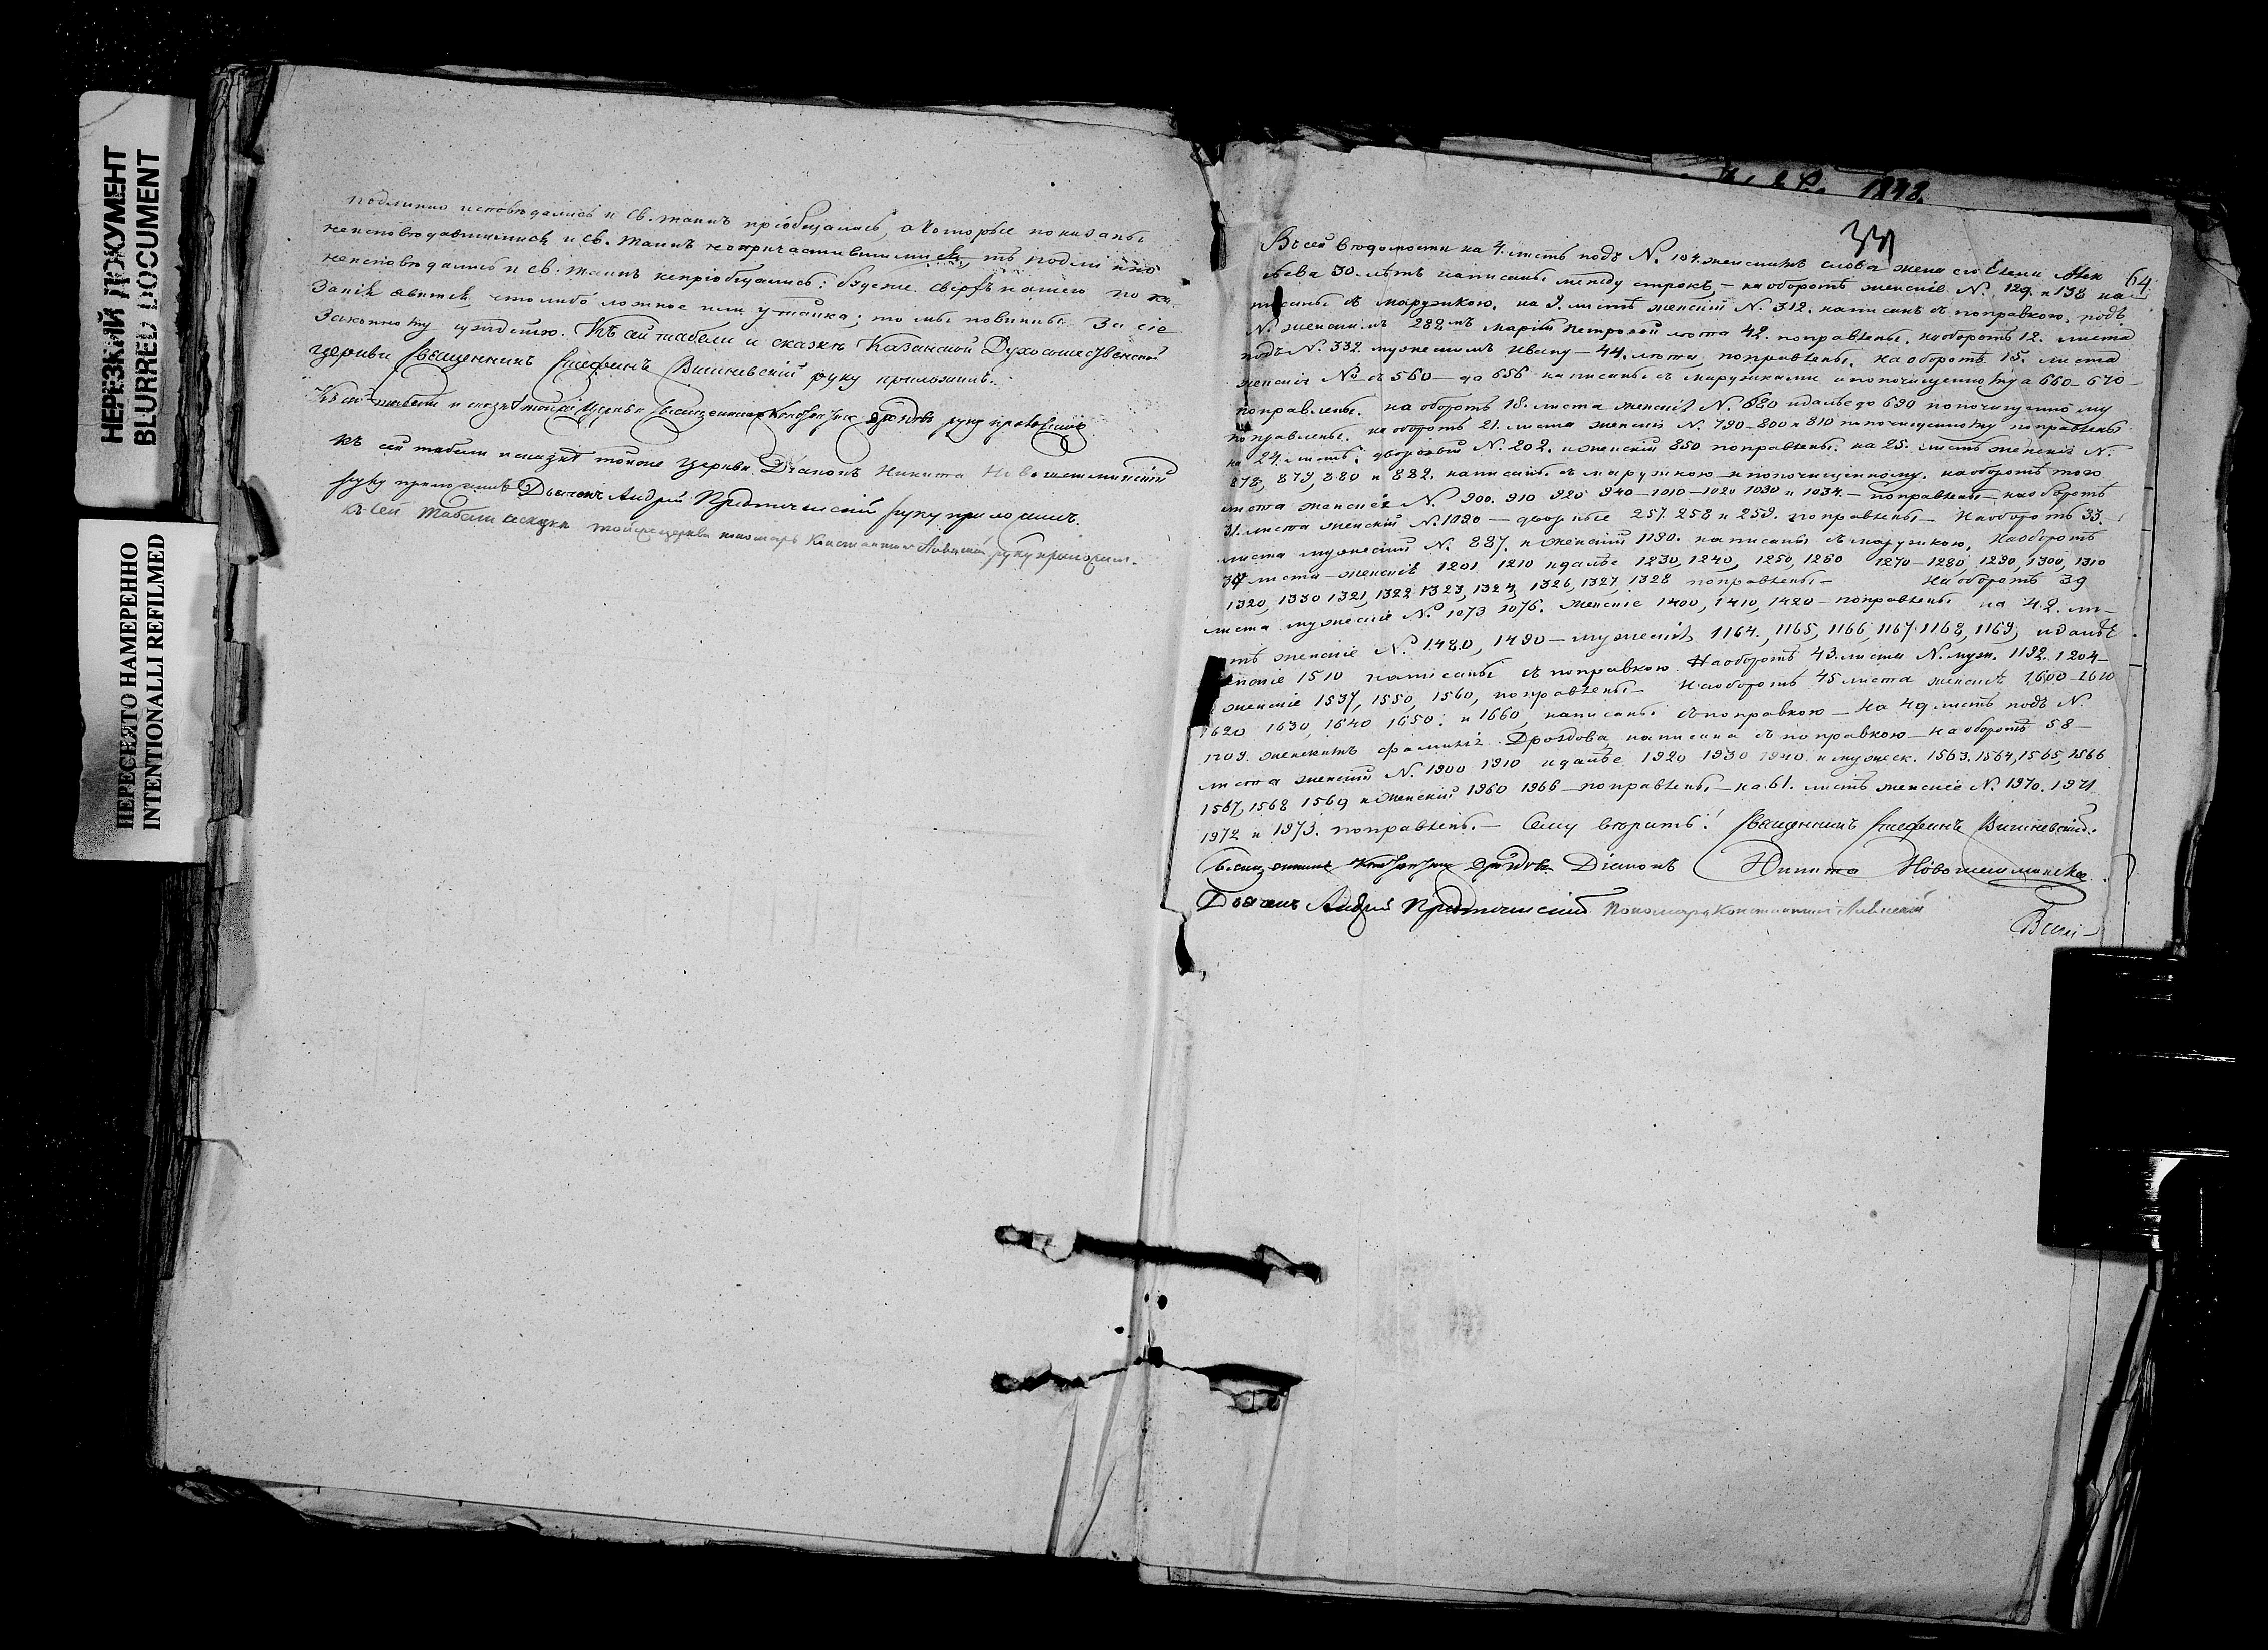 НЕРЕЗКИЙ ДОКУМЕНТ
BLURRED DOCUMENT
ПЕРЕСНЯТО НАМЕРЕННО
INTENTIONALLI REFILMED
подлинно исповѣдались и св. таинъ пріобщались, а которые показаны
неисповѣдавшимися и св. таинъ непричастившимися, тѣ подлинно
неисповѣдались и св. таинъ непріобщались; буде же сверхъ нашего пока
занія явится, что либо ложное или утайка; то мы повинны за сіе
законному сужденію. Къ сей табели и сказкѣ Казанской Духосошественской
церкви Священникъ Стефанъ Вишневскій руку приложилъ.
Къ сей табели и сказкѣ тойже Церкви Священникъ Дроздовъ руку приложилъ
къ сей табели и сказкѣ тойже Церкви Діаконъ Никита Новошешминскій
руку приложилъ Дьячекъ Андрей Предтеченскій руку приложилъ.
къ сей табели и сказки тойже церкви пономарь Константинъ руку приложил.
1848.
64.
Въ сей вѣдомости на 4. листѣ подъ № 104. женскимъ слова жена его Елена Алек
сѣева 30. лѣтъ написаны между строкъ, – на оборотѣ женскіе № 129. и 138 на
писаны съ марушкою, на 9. листѣ женскій № 312. написанъ съ поправкою, подъ
№ женскимъ 288мъ Маріи Петровой лѣта 42. поправлены. на оборотѣ 12. листа
подъ №. 332. мужескимъ Ивану – 44. лѣта, поправлены, на оборотѣ 15. листа
женскіе № съ 560 – до 656 написаны съ марушками и по почищенному а 660 – 670 –
поправлены. на оборотѣ 18. листа женскіе №. 680 и далѣе до 690 по почищенному
поправлены. на оборотѣ 21. листа женскіе №. 790 – 800 и 810 по почищенному поправлены
на 24. листѣ: дворовый №. 202. и женскій 850 поправлены. на 25. листѣ женскіе №.
878, 879, 880 и 882. написаны съ марушкою и по почищенному. на оборотѣ того
листа женскіе №. 900. 910 920 940 – 1010 – 1020 1030 и 1034. – поправлены – на оборотѣ
31. листа женскій №. 1090 – дворовые 257. 258 и 259. поправлены – На оборотѣ 33.
листа мужескій №. 887. и женскій 1190. написаны съ марушкою. На оборотѣ
34 листа – женскіе 1201 1210 и далѣе 1230, 1240, 1250, 1260 1270 – 1280, 1290, 1300, 1310
1320, 1330 1321, 1322 1323, 1324, 1326, 1327, 1328 поправлены – На оборотѣ 39
листа мужескіе № 1073 1076. женскіе 1400, 1410, 1420 – поправлены на 42. ли–
стѣ женскіе №. 1480, 1490 – мужескіе 1164., 1165, 1166, 1167 1168, 1169, и далѣе
женскіе 1510 написаны съ поправкою. На оборотѣ 43. листа №. муж. 1192. 1204 –
женскіе 1537, 1550, 1560, поправлены – На оборотѣ 45 листа женскіе 1600 – 1610
1620 1630, 1640 1650. и 1660, написаны съ поправкою – На 49 листѣ подъ №.
1709. женскимъ фамилія Дроздова, написана съ поправкою – на оборотѣ 58 –
листа женскій №. 1900 1910 и далѣе 1920 1930 1940 и мужеск. 1563. 1564, 1565, 1566
1567, 1568 1569 и женскій 1960 1966 – поправлены – на 61. листѣ женскіе №. 1970. 1971
1972 и 1973. поправлены. – Сему вѣрить! Священникъ Стефанъ Вишневскій.
Священникъ Дроздовъ Діаконъ Никита Новошешминскій.
Дьячекъ Андрей Предтеченскій Пономарь Константинъ